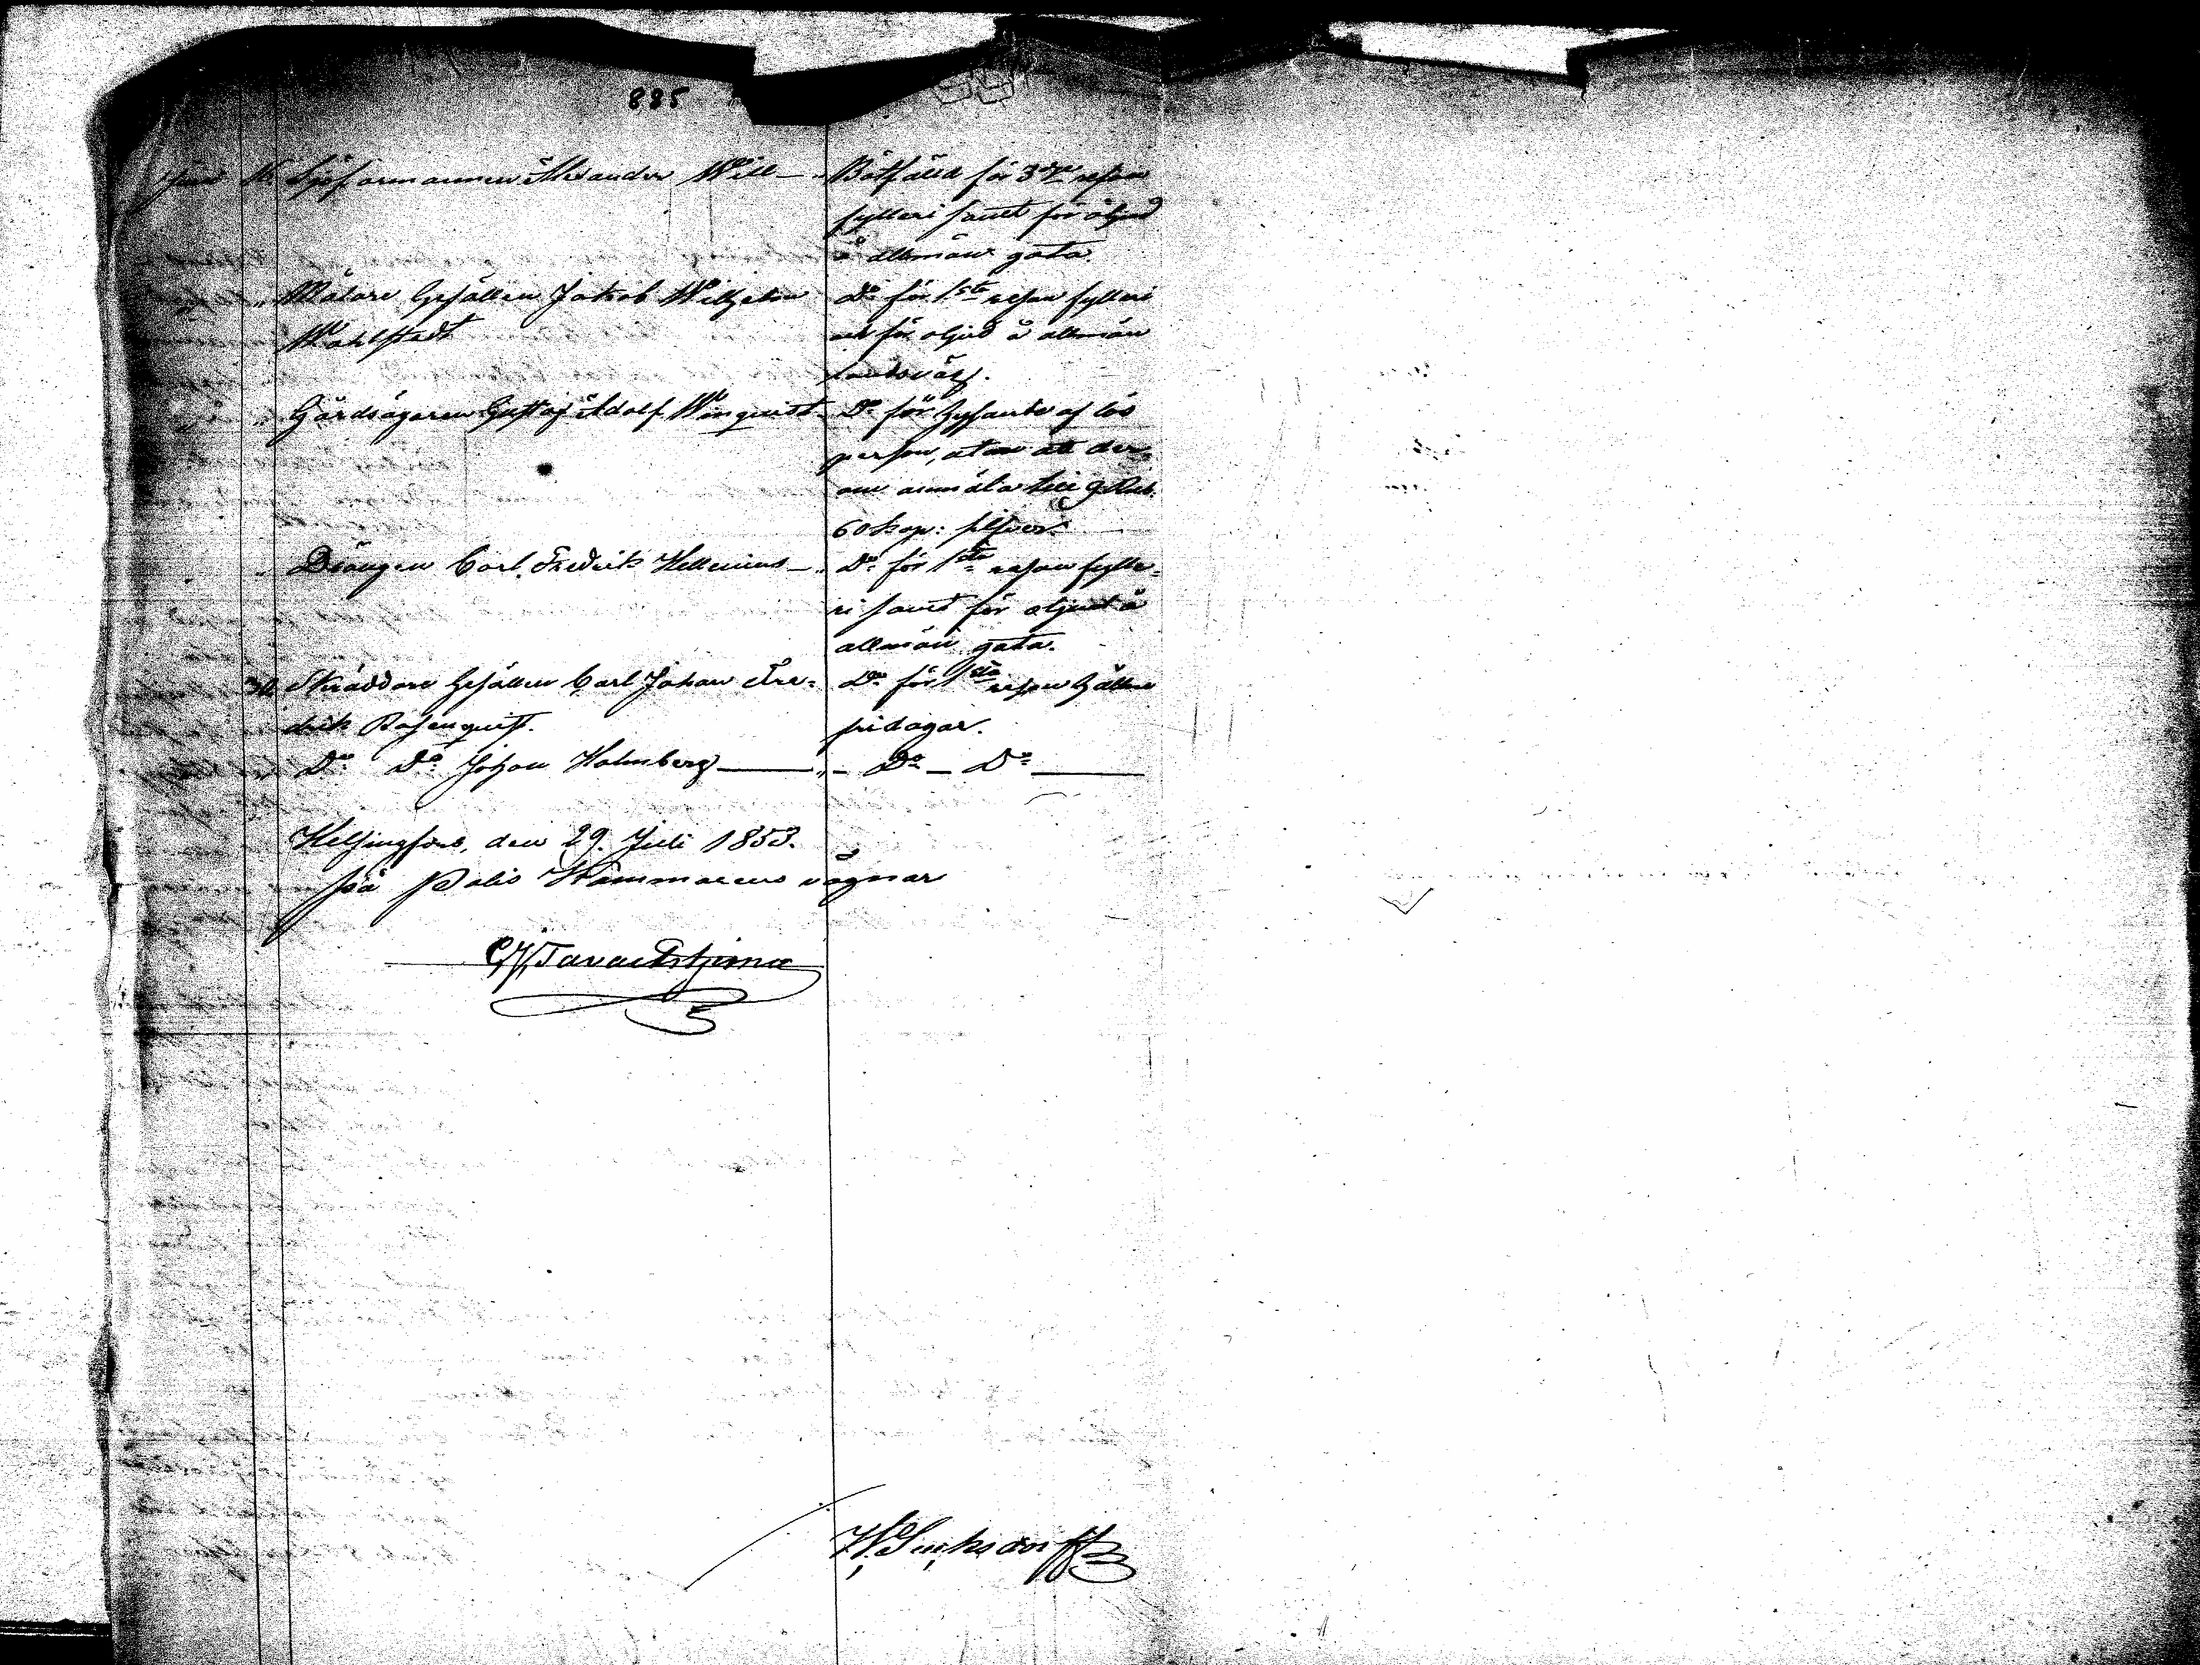 885
Juni 16 Sjöfarmannen Alexander Will — „ Bötfälld för 3dje resan
fylleri samt för oljud
å allmän gata.
„ Målare Gesällen Jakob Wilhelm Do för 1sta resan fylleri
Wahlstedt
och för oljud å allmän
landsväg.
„ Gårdsägaren Gustaf Adolf Winquist Do för hysande af lös
person, utan att der-
om anmäla till 9 Rub.
60 kop: silfver.
„ Drängen Carl Fredrik Hellenius — „ Do för 1sta resan fylle-
ri samt för oljud å
allmän gata.
30 Skräddare Gesällen Carl Johan Fre- Do för 1sta resan hållne
drik Rosenquist.
fridagar.
Do Do Johan Holmberg — „ — Do — Do —
Helsingfors, den 29. Juli 1853.
På Polis Kammarens vägnar